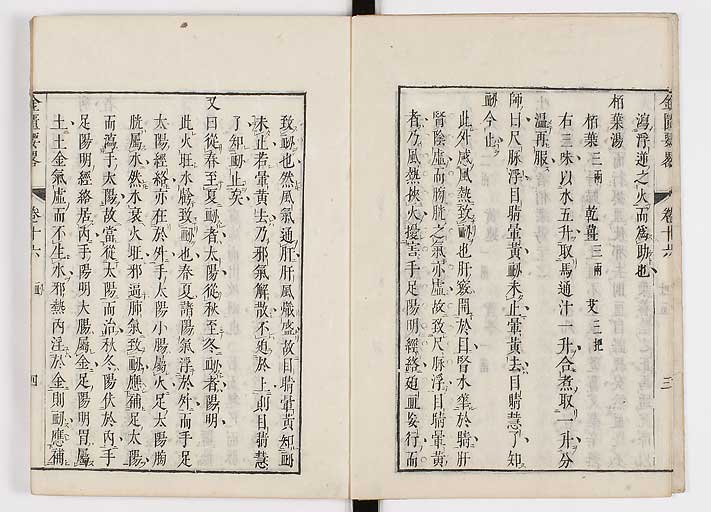 金匱要畧 卷十六 三
瀉浮逆之火而為助也
栢葉湯
栢葉三兩 乾薑三兩 艾三把
右三味以水五升取馬通汁一升合煮取一升分
温再服
師曰尺脉浮目睛暈黄衂未止暈黄去目睛慧了知
衂今止
此外感風熱致衂也肝竅開於目腎水單於睛肝
腎陰虛而胸膈之氣亦虛故致尺脉浮目睛暈黄
者乃風熱挾火擾害手足陽明經絡迫血妄行而
致衂也然風氣通肝肝風熾盛故目睛暈黄知衂
未止若暈黄去乃邪氣解散不廹於上則目睛慧
了知衂止矣
又曰從春至夏衂者太陽從秋至冬衂者陽明
此火旺水虧致衂也春夏諸陽氣浮於外而手足
太陽經絡亦在於外手太陽小腸屬火足太陽膀
胱屬水然水衰火旺邪逼肺氣致衂應補足太陽
而瀉手太陽故當從太陽而治秋冬陽伏於内手
足陽明經絡居内手陽明大腸屬金足陽明胃屬
土土金氣虛而不生水邪熱内淫於金則衂應補
金匱要畧 卷十六 四